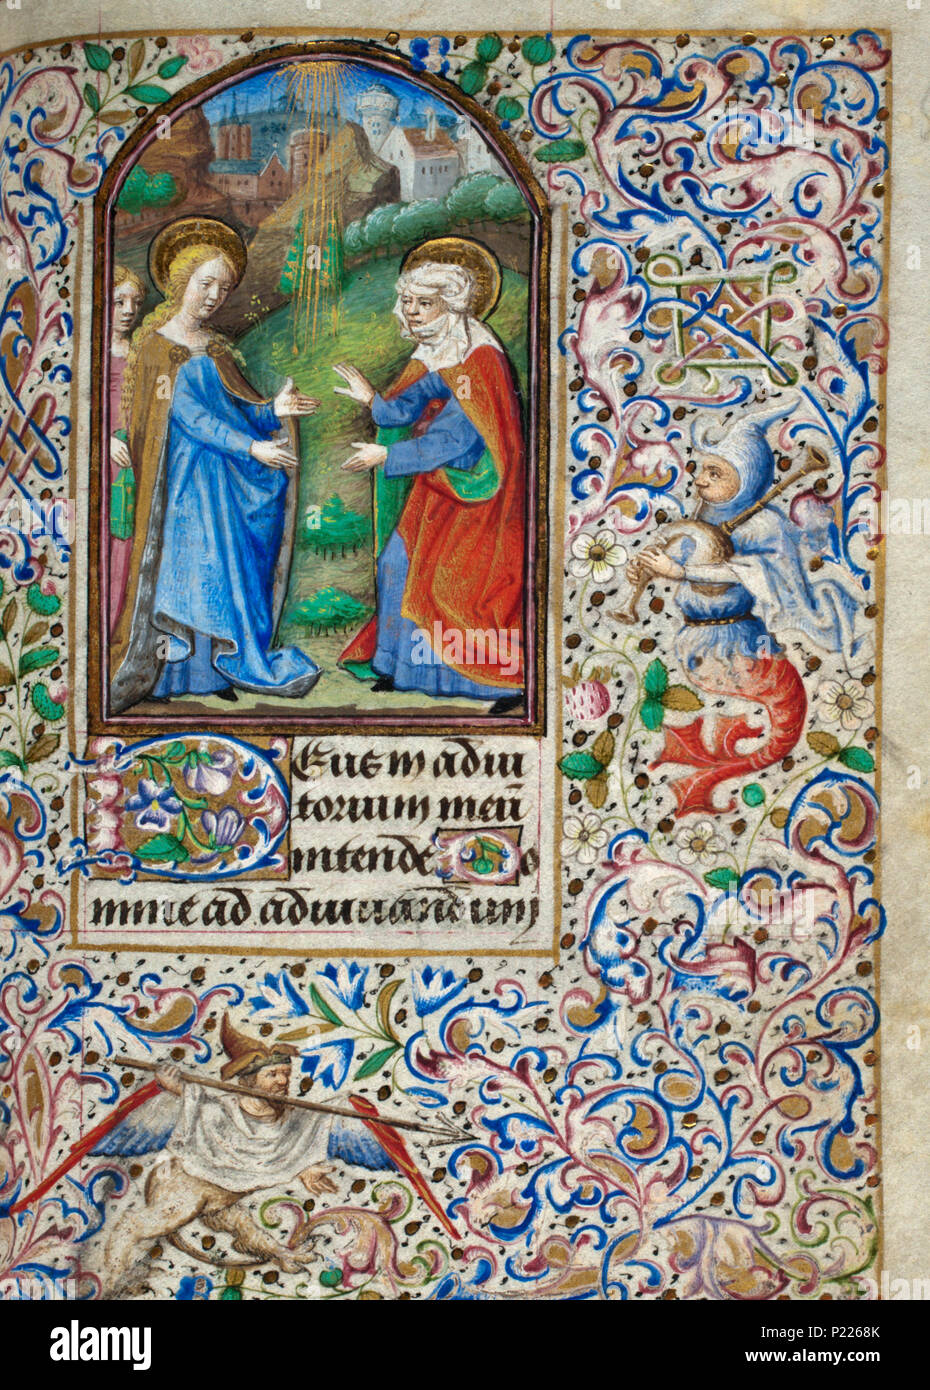 Deus in adiu
torium meū
intende Do
mine ad adiuuandum
alamy
Image ID: P2268K
www.alamy.com